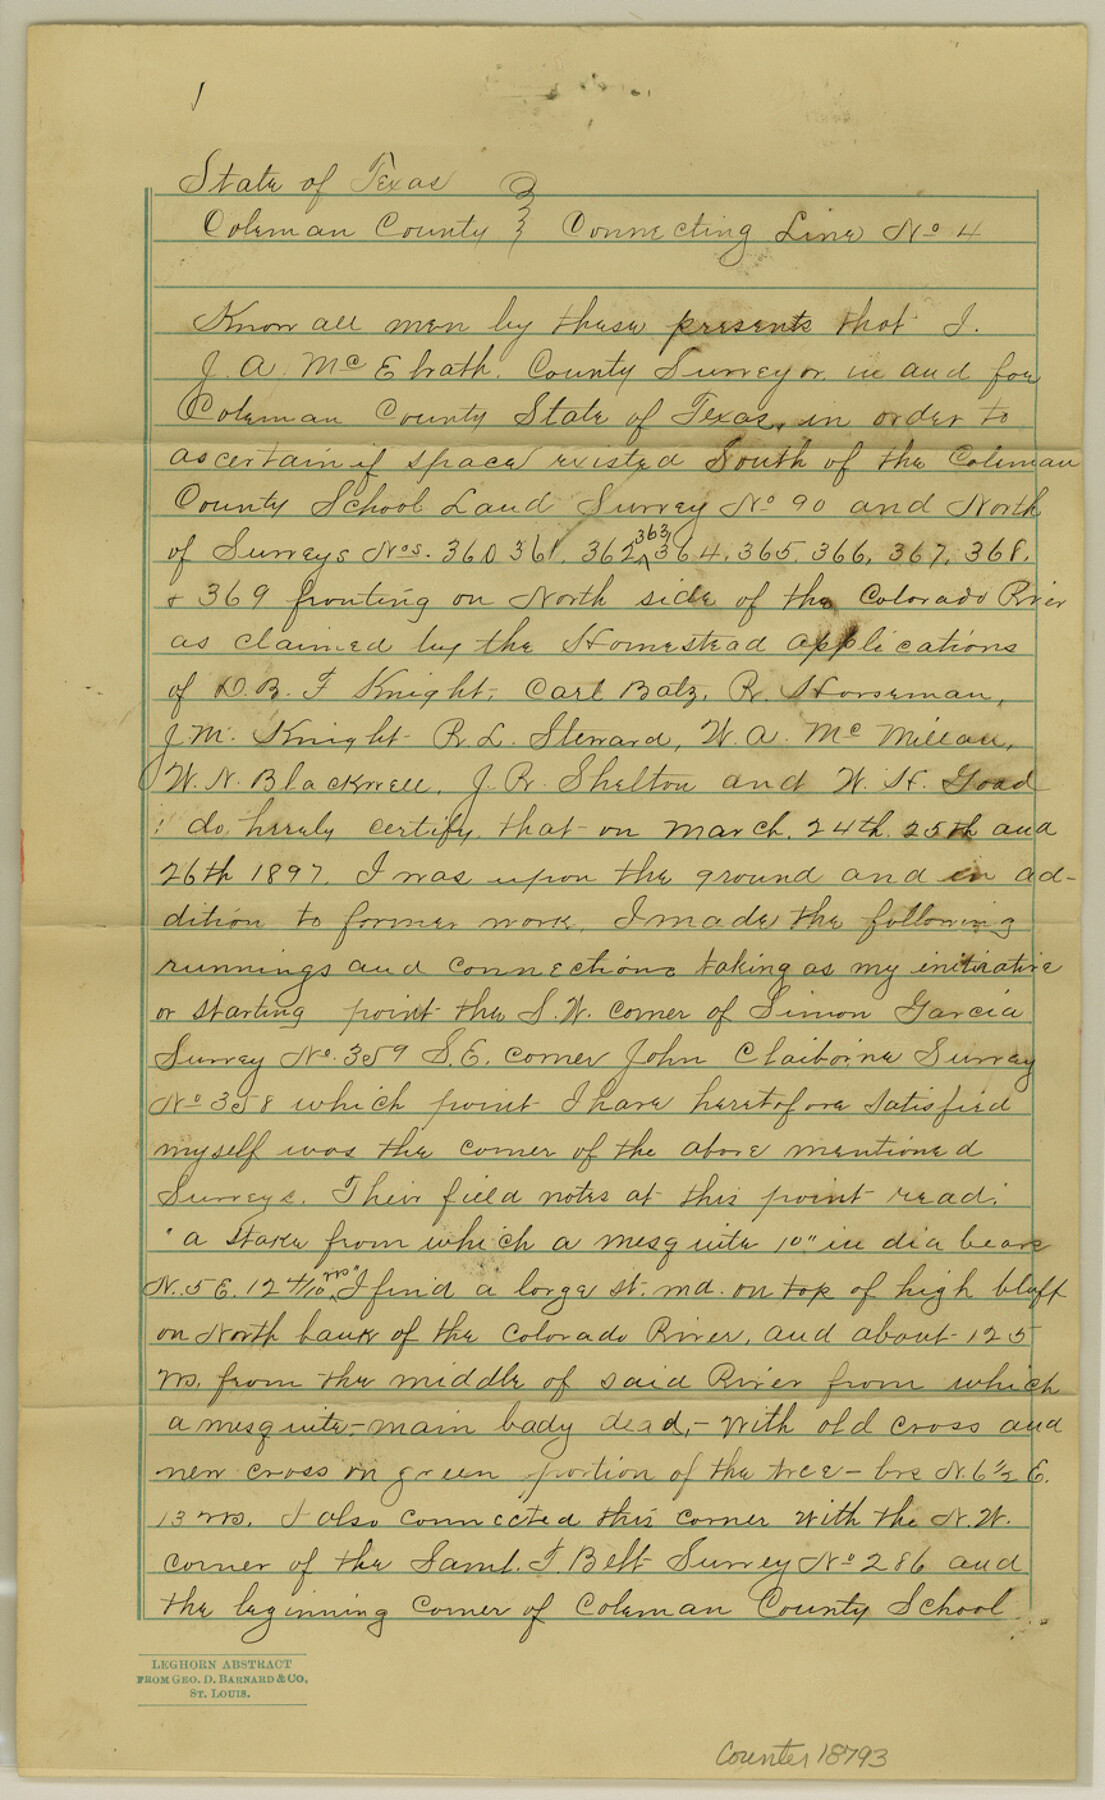 1
State of Texas }
Coleman County } Connecting Line No 4
Know all men by these presents that I.
J. A. McElrath. County Surveyor in and for
Coleman County State of Texas, in order to
ascertain if space existed South of the Coleman
County School Land Survey No 90 and North
of Surveys Nos. 360 361, 362, 363, 364, 365, 366, 367, 368,
& 369 fronting on North side of the Colorado River
as claimed by the Homestead applications
of D. B. F Knight, Carl Batz, R. Horseman,
J. M. Knight R. L. Steward, W. A. McMillan,
W. N. Blackwell, J. R. Shelton and W. H. Goad
do hereby certify that on March, 24th, 25th and
26th 1897. I was upon the ground and in ad-
dition to former work, I made the following
runnings and connections taking as my initiative
or starting point the S. W. corner of Simon Garcia
Survey No. 359 S.E. corner John Claiborne Survey
No 358 which point I have heretofore satisfied
myself was the corner of the above mentioned
Surveys. Their field notes at this point read:
"a stake from which a mesquite 10" in dia bears
N. 5 E. 12 4/10 vrs" I find a large st. md. on top of high bluff
on North bank of the Colorado River, and about 125
vrs. from the middle of said River from which
a mesquite,-main body dead,- with old cross and
new cross on green portion of the tree - brs N. 6 1/2 E.
13 vrs. I also connected this corner with the N. W.
corner of the Saml. T. Belt Survey No 286 and
the beginning corner of Coleman County School
LEGHORN ABSTRACT
FROM GEO. D. BARNARD & CO.
ST. LOUIS.
Counter 18793